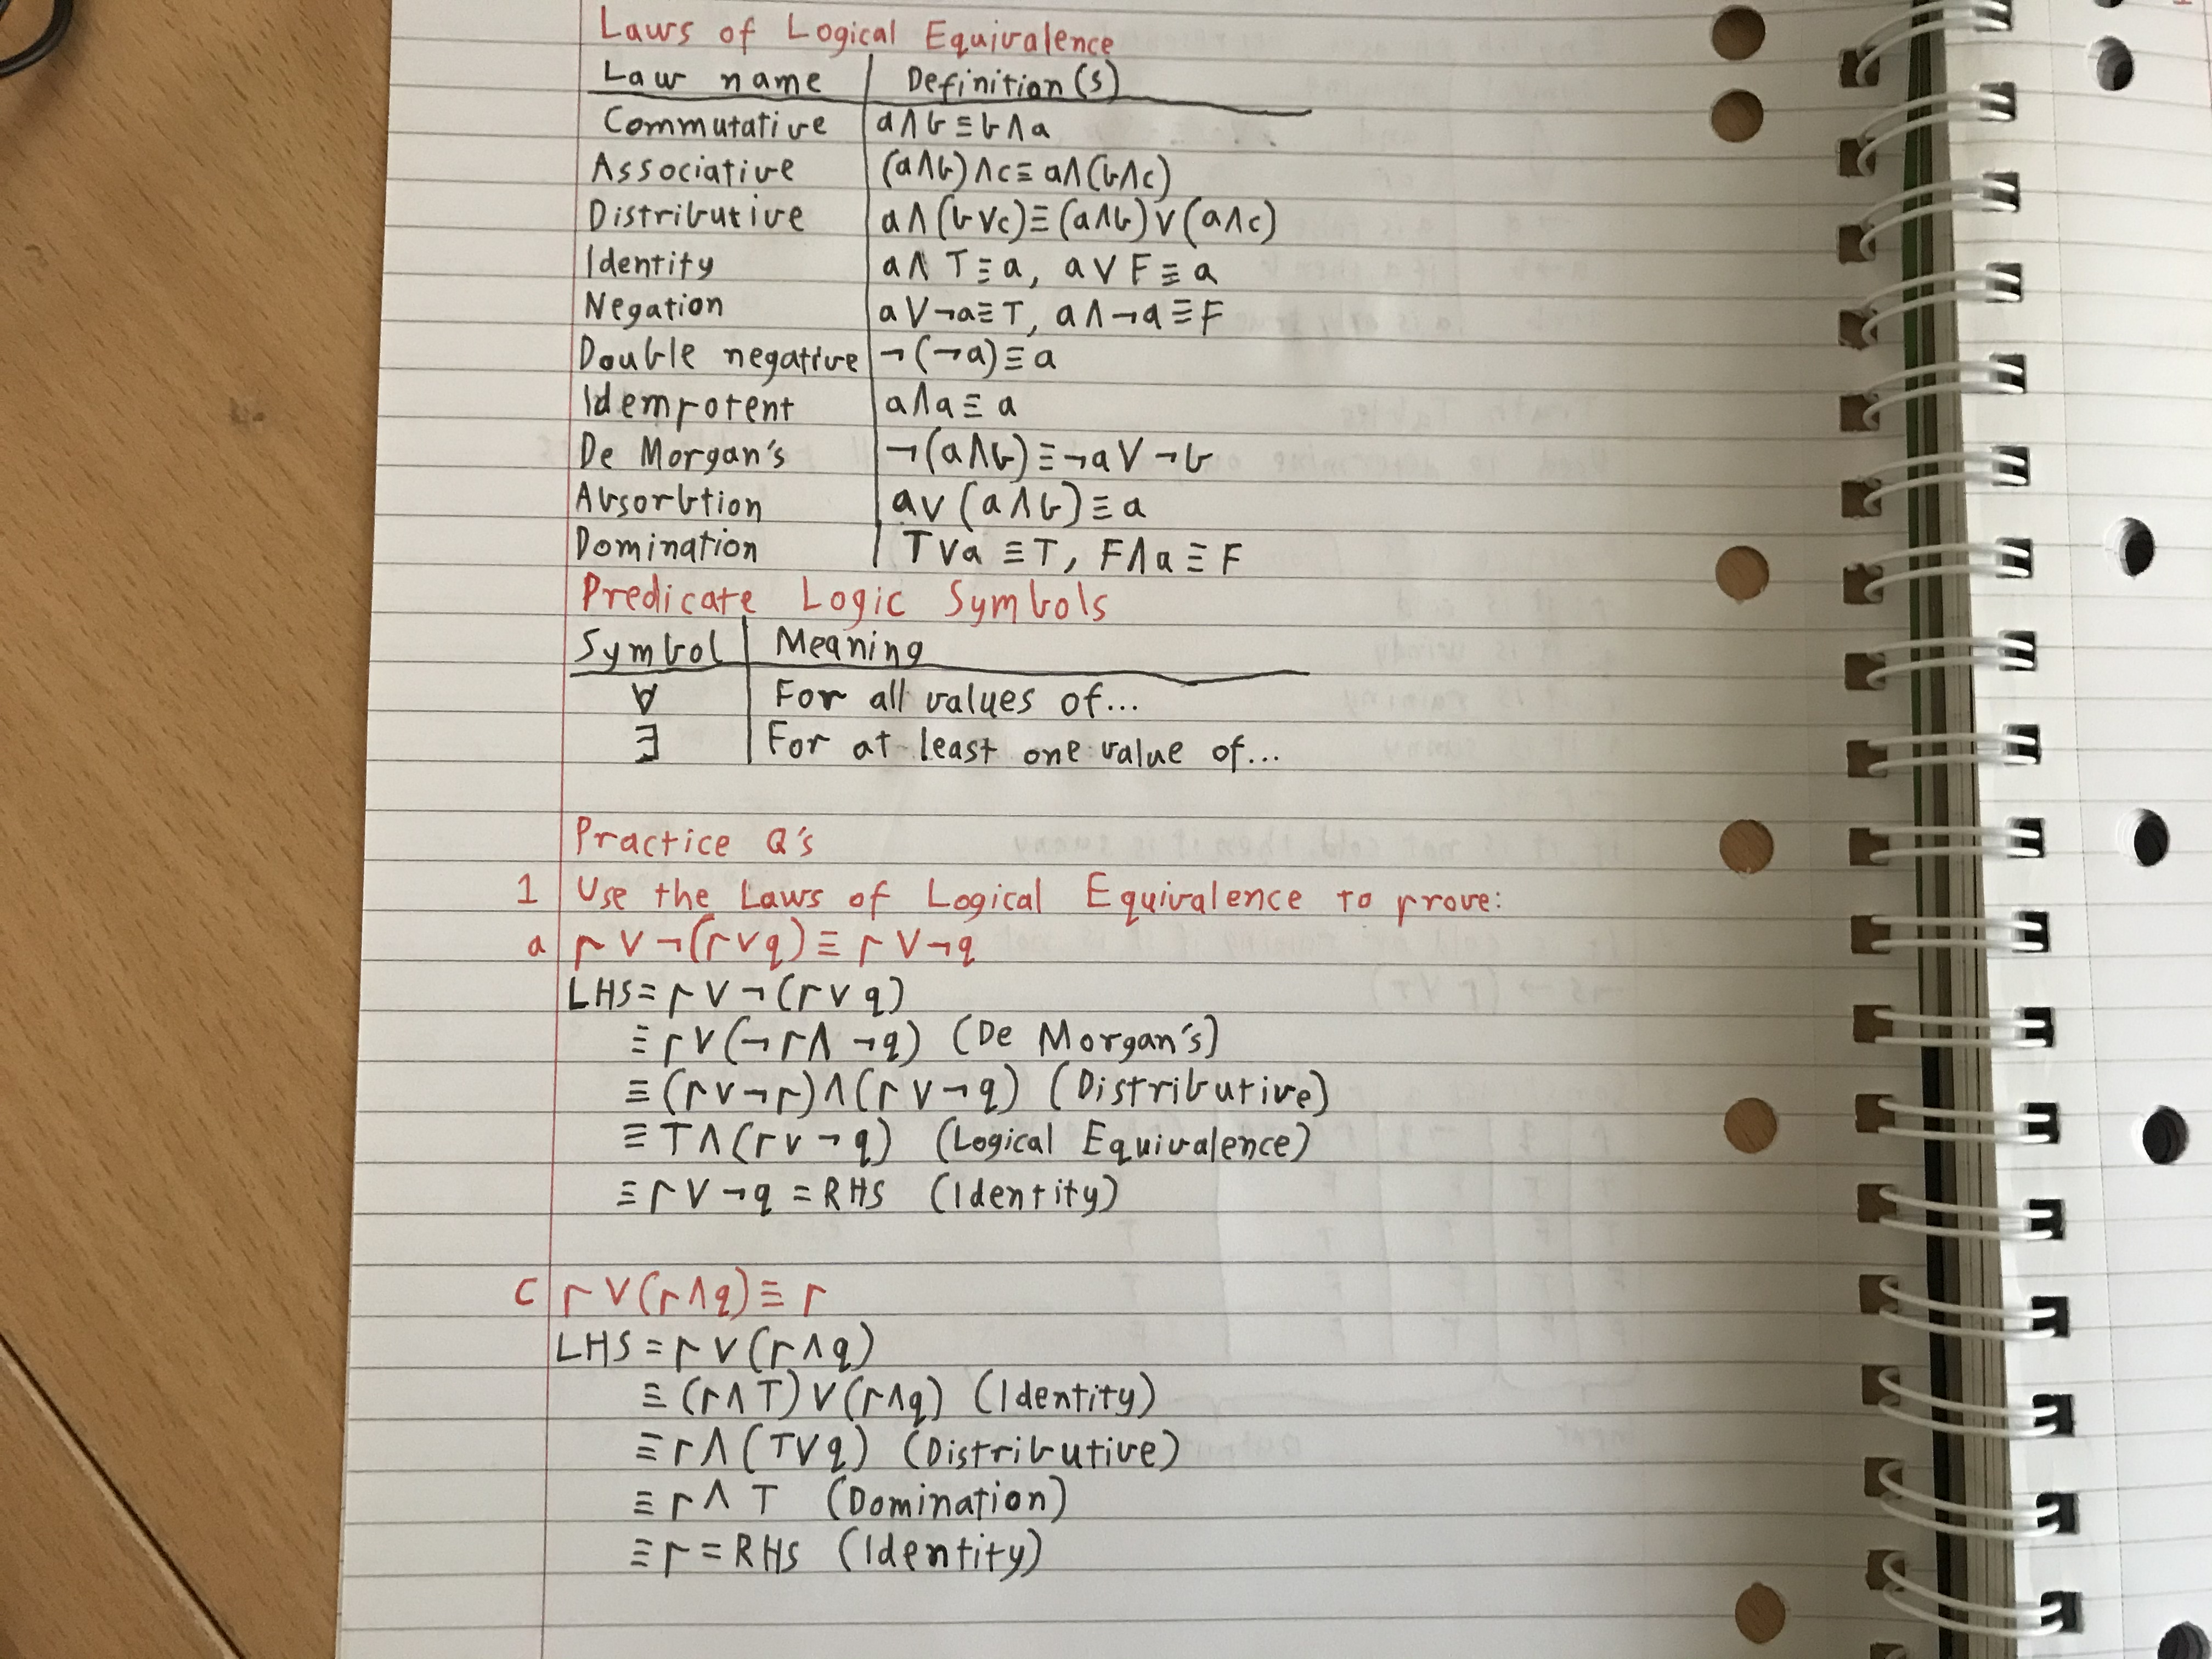 Laws of Logical Equivalence
Law name | Definition(s)
Commutative | a∧b≡b∧a
Associative | (a∧b)∧c≡a∧(b∧c)
Distributive | a∧(b∨c)≡(a∧b)∨(a∧c)
Identity | a∧T≡a, a∨F≡a
Negation | a∨¬a≡T, a∧¬a≡F
Double negative | ¬(¬a)≡a
Idempotent | a∧a≡a
De Morgan's | ¬(a∧b)≡¬a∨¬b
Absorbtion | a∨(a∧b)≡a
Domination | T∨a≡T, F∧a≡F
Predicate Logic Symbols
Symbol | Meaning
∀ | For all values of...
∃ | For at least one value of...
Practice Q's
1 Use the Laws of Logical Equivalence to prove:
a p∨¬(p∨q)≡p∨¬q
LHS=p∨¬(p∨q)
≡p∨(¬p∧¬q) (De Morgan's)
≡(p∨¬p)∧(p∨¬q) (Distributive)
≡T∧(p∨¬q) (Logical Equivalence)
≡p∨¬q=RHS (Identity)
c p∨(p∧q)≡p
LHS=p∨(p∧q)
≡(p∧T)∨(p∧q) (Identity)
≡p∧(T∨q) (Distributive)
≡p∧T (Domination)
≡p=RHS (Identity)